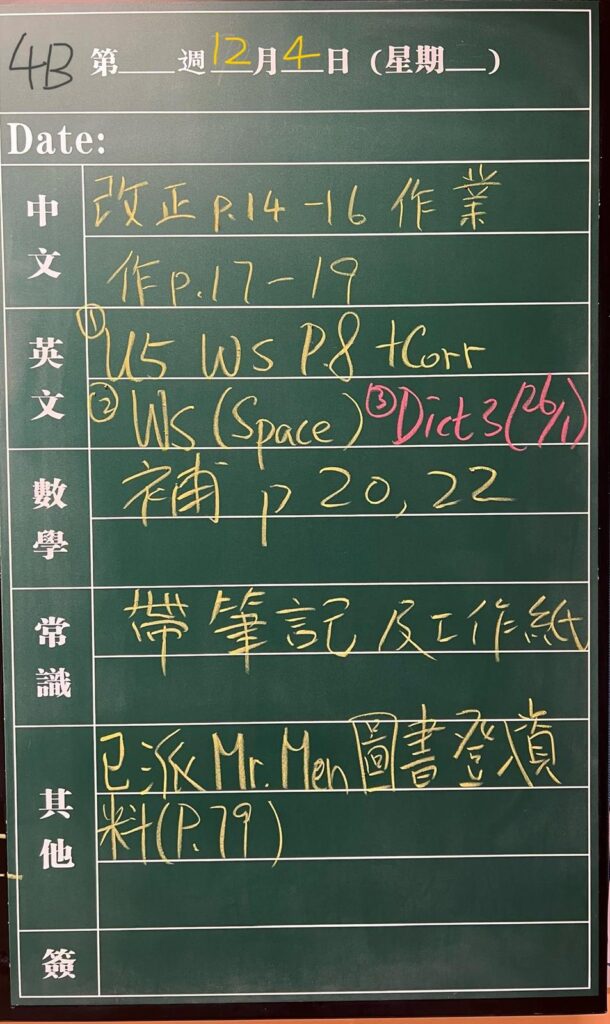 4B 第___週12月4日(星期___)
Date:
中文
改正p.14-16 作業
作p.17-19
英文
① U5 WS P.8 +Corr
② WS (Space) ③ Dict 3 (26/1)
數學
補 p 20, 22
常識
帶筆記及工作紙
其他
已派Mr. Men圖書登資
料(P.79)
簽